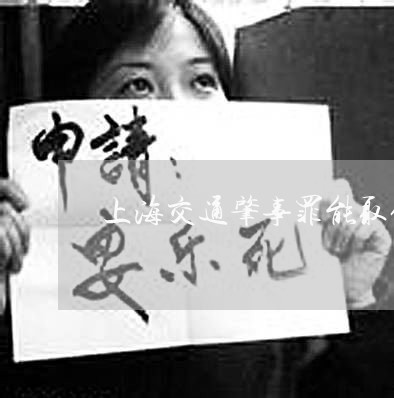 申請：
上海交通肇事罪能取
安乐死